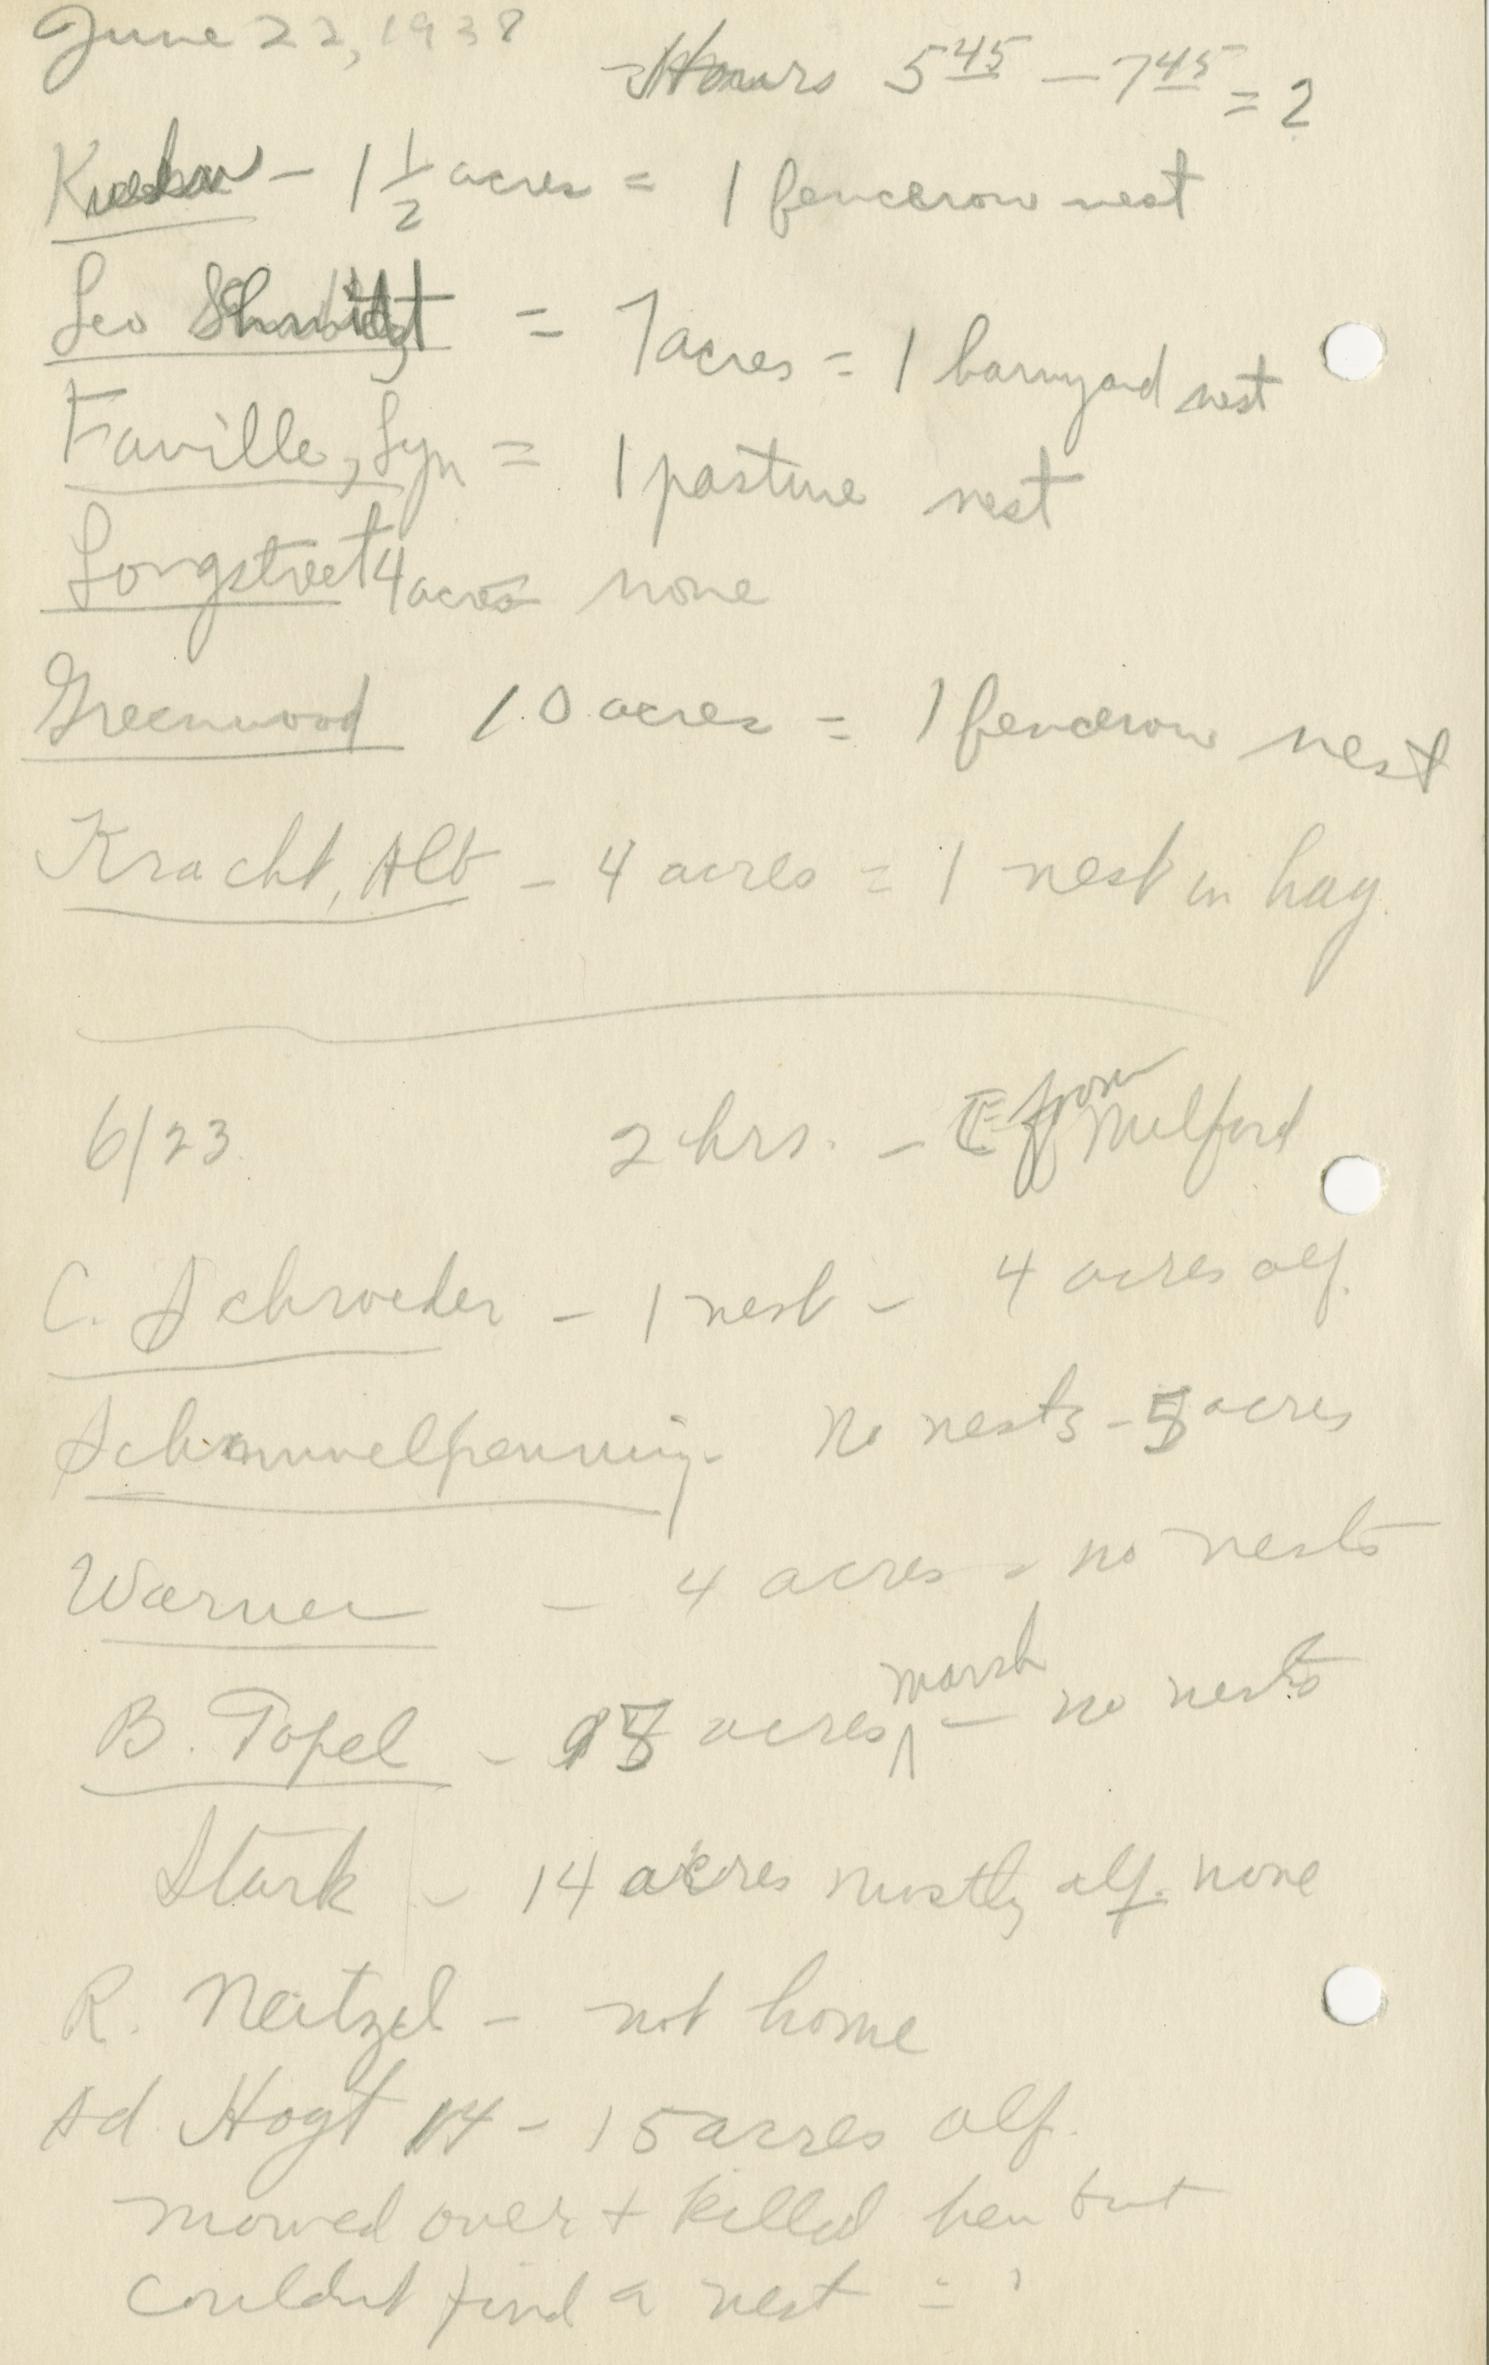 June 22, 1938
Hours 5 45 – 7 45 = 2
– 1 1/2 acres = 1 fencerow nest
Leo Schmidt = 7 acres = 1 barnyard nest
Faville, Lyn = 1 pasture nest
Longstreet 4 acres none
Greenwood 10 acres = 1 fencerow nest
Kracht, Alb – 4 acres = 1 nest in hay.
6/23 2 hrs. – E from Milford
C. Schroeder – 1 nest – 4 acres alf.
Schimmelpfennig – No nests – 5 acres
Warner – 4 acres – no nests
B. Topel – acres marsh – no nests
Stark – 14 acres mostly alf. none
R. Neitzel – not home
Ad. Hoyt 14 – 15 acres alf.
mowed over + killed hen but
couldnt find a nest = 1